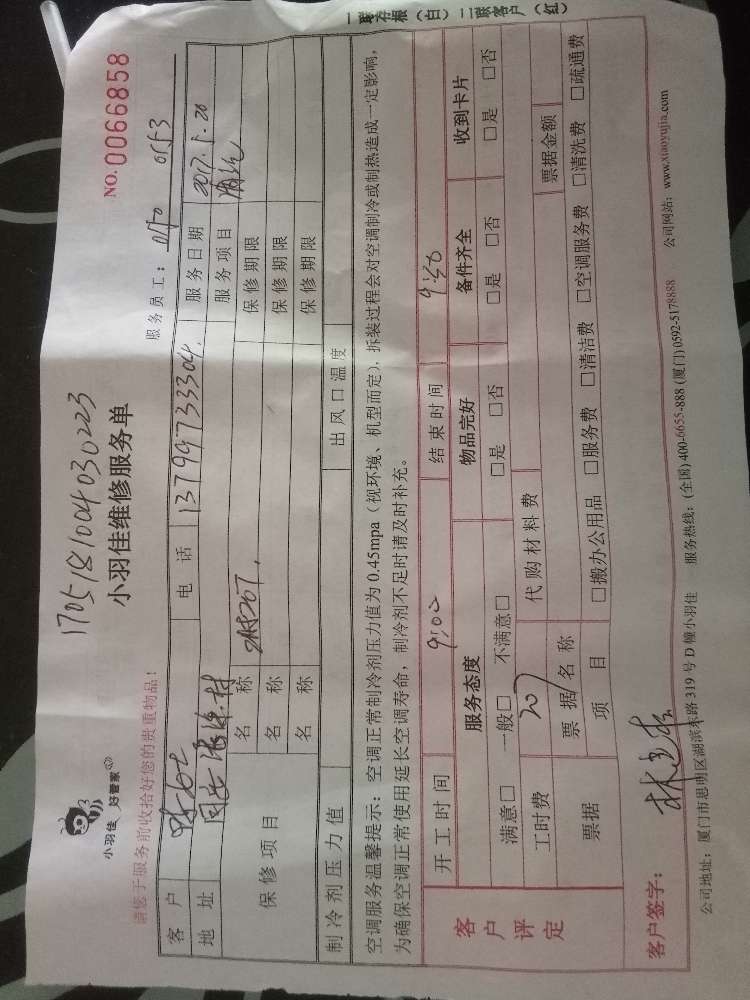 一联存根（白）二联客户（红）
17051810040302​23
NO. 0066858
小羽佳 好管家
小羽佳维修服务单
请您于服务前收拾好您的贵重物品！
服务员工：
客户 电话 13799733304. 服务日期 2017.5.20
地址 服务项目 清洗
保修项目
名称 保修期限
名称 保修期限
名称 保修期限
制冷剂压力值 出风口温度
空调服务温馨提示：空调正常制冷剂压力值为 0.45mpa（视环境、机型而定），拆装过程会对空调制冷或制热造成一定影响，
为确保空调正常使用延长空调寿命，制冷剂不足时请及时补充。
客户评定
开工时间 9:02 结束时间 9:50
服务态度 物品完好 备件齐全 收到卡片
满意□ 一般□ 不满意□ □是 □否 □是 □否 □是 □否
工时费 207 代购材料费
票据 票据名称 票据金额
项目 □搬办公用品 □服务费 □清洁费 □空调服务费 □清洗费 □疏通费
客户签字：
公司地址：厦门市思明区湖滨东路 319 号 D 幢小羽佳 服务热线：(全国) 400-6655-888 (厦门) 0592-5178888 公司网站：www.xiaoyujia.com